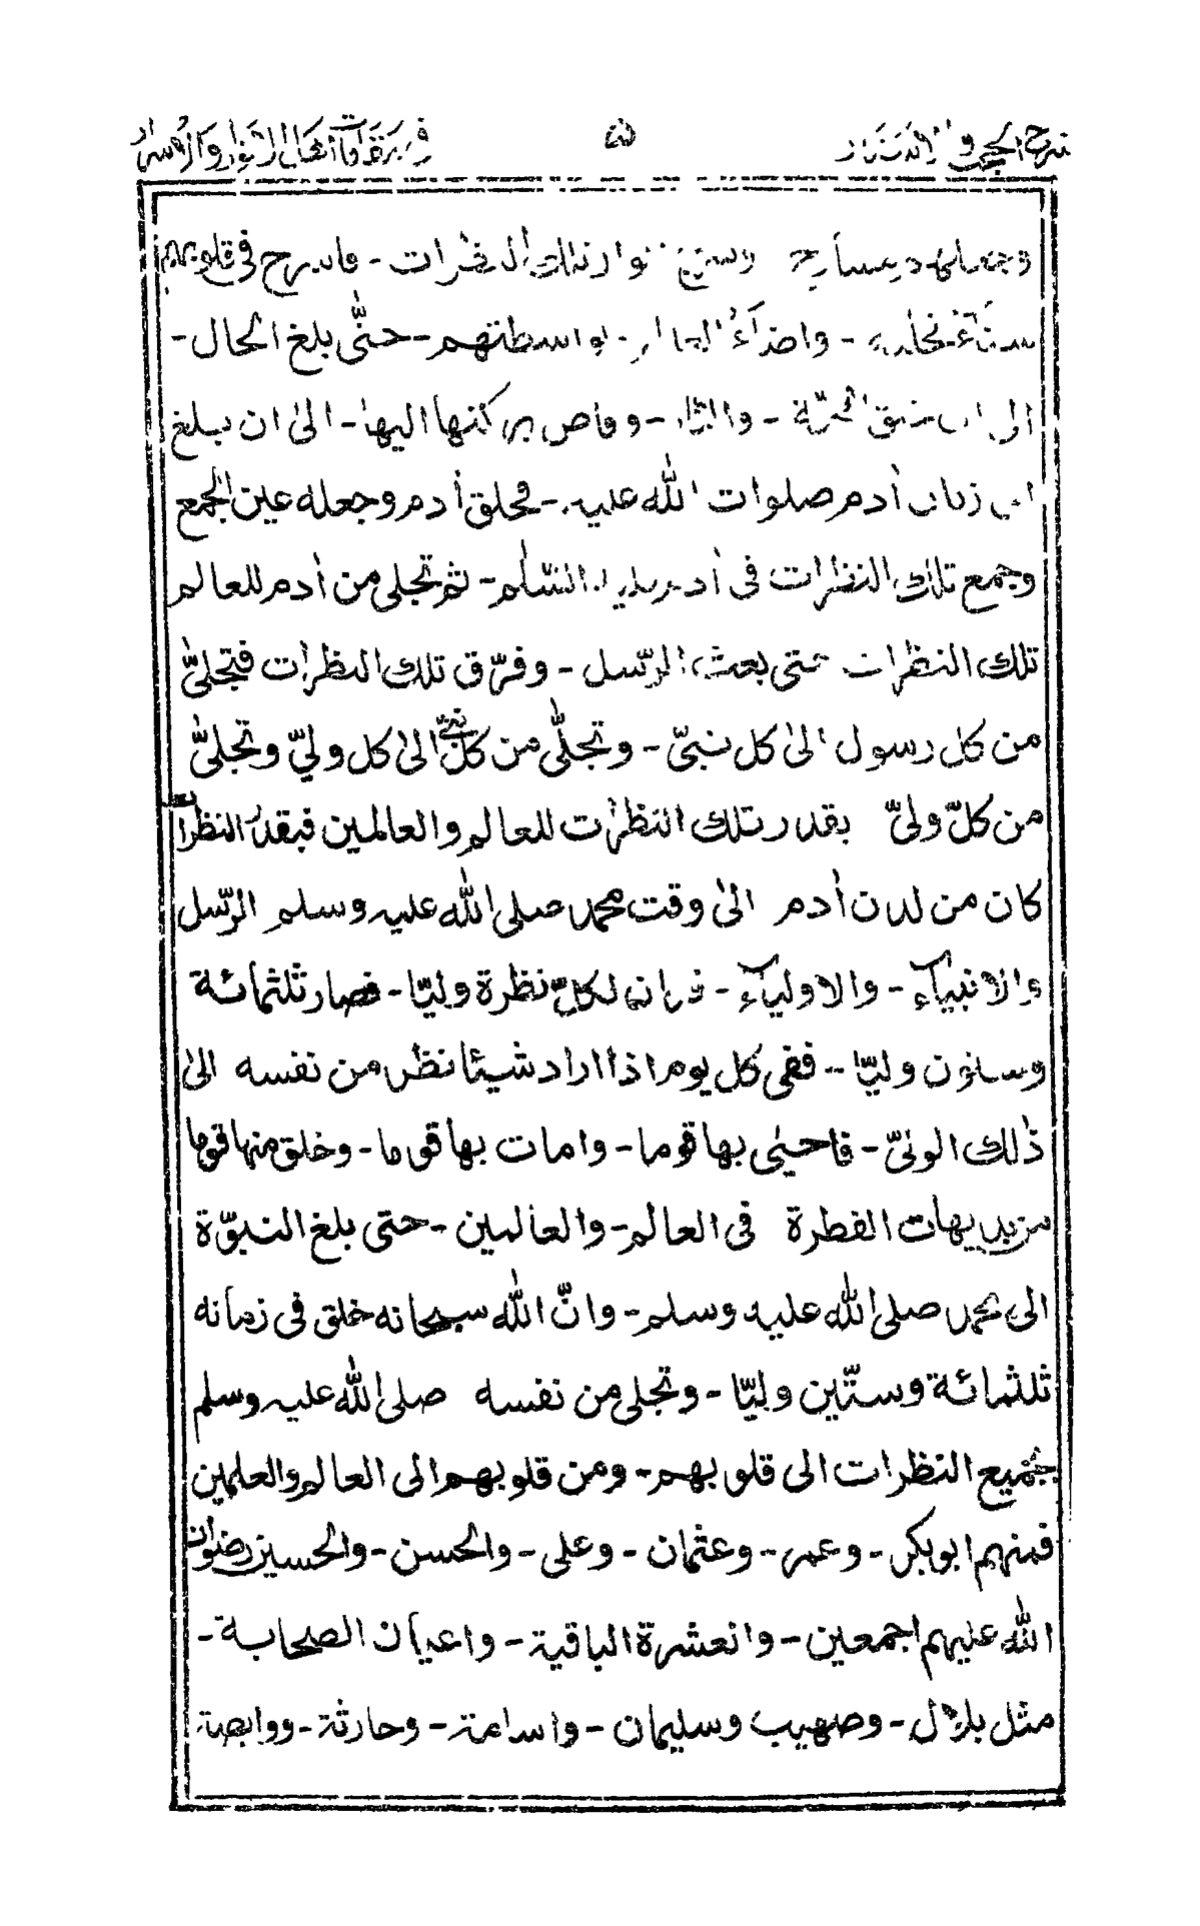 شرح الحجب والاستار ۵ في مقامات اهل الانوار والاسرار
انوار تلك النظرات - فاسرح في قلوبهم
واضاء - بواسطتهم - حتّٰى بلغ الحال -
الى - وفاض بركتها اليها - الىٰ ان بلغ
الى زمان اٰدم صلوات الله عليه - فخلق اٰدم وجعله عين الجمع
وجمع تلك النظرات فى اٰدم عليه السّلٰم - ثم تجلى من اٰدم للعالم
تلك النظرات حتى بعث الرّسل - وفرّق تلك النظرات فتجلىّٰ
من كل رسول الىٰ كل نبىّ - وتجلّٰى من كلّ نبىّ الىٰ كل ولىّ وتجلىّٰ
من كلّ ولىّ بقدر تلك النظرٰت للعالم والعالمين فبقدر النظرات
كان من لدن اٰدم الىٰ وقت محمد صلى الله عليه وسلم الرّسل
والانبيآء - والاوليآء - لكلّ نظرة وليّا - فصار ثلثمائة
وستون وليّا - ففى كل يوم اذا اراد شيئا نظر من نفسه الىٰ
ذٰلك الولىّ - فاحيىٰ بها قوما - وامات بها قوما - وخلق منها قوما
الفطرة فى العالم - والعالمين - حتى بلغ النبوّة
الى محمد صلى الله عليه وسلم - وانّ الله سبحانه خلق فى زمانه
ثلثمائة وستّين وليّا - وتجلى من نفسه صلى الله عليه وسلم
بجميع النظرات الى قلوبهم - ومن قلوبهم الى العالم والعلمين
فمنهم ابوبكر - وعمر - وعثمان - وعلى - والحسن - والحسين رضوان
الله عليهم اجمعين - والعشرة الباقية - واعيان الصحابة -
مثل بلال - وصهيب وسليمان - واسامة - وحارثة - ووابصة